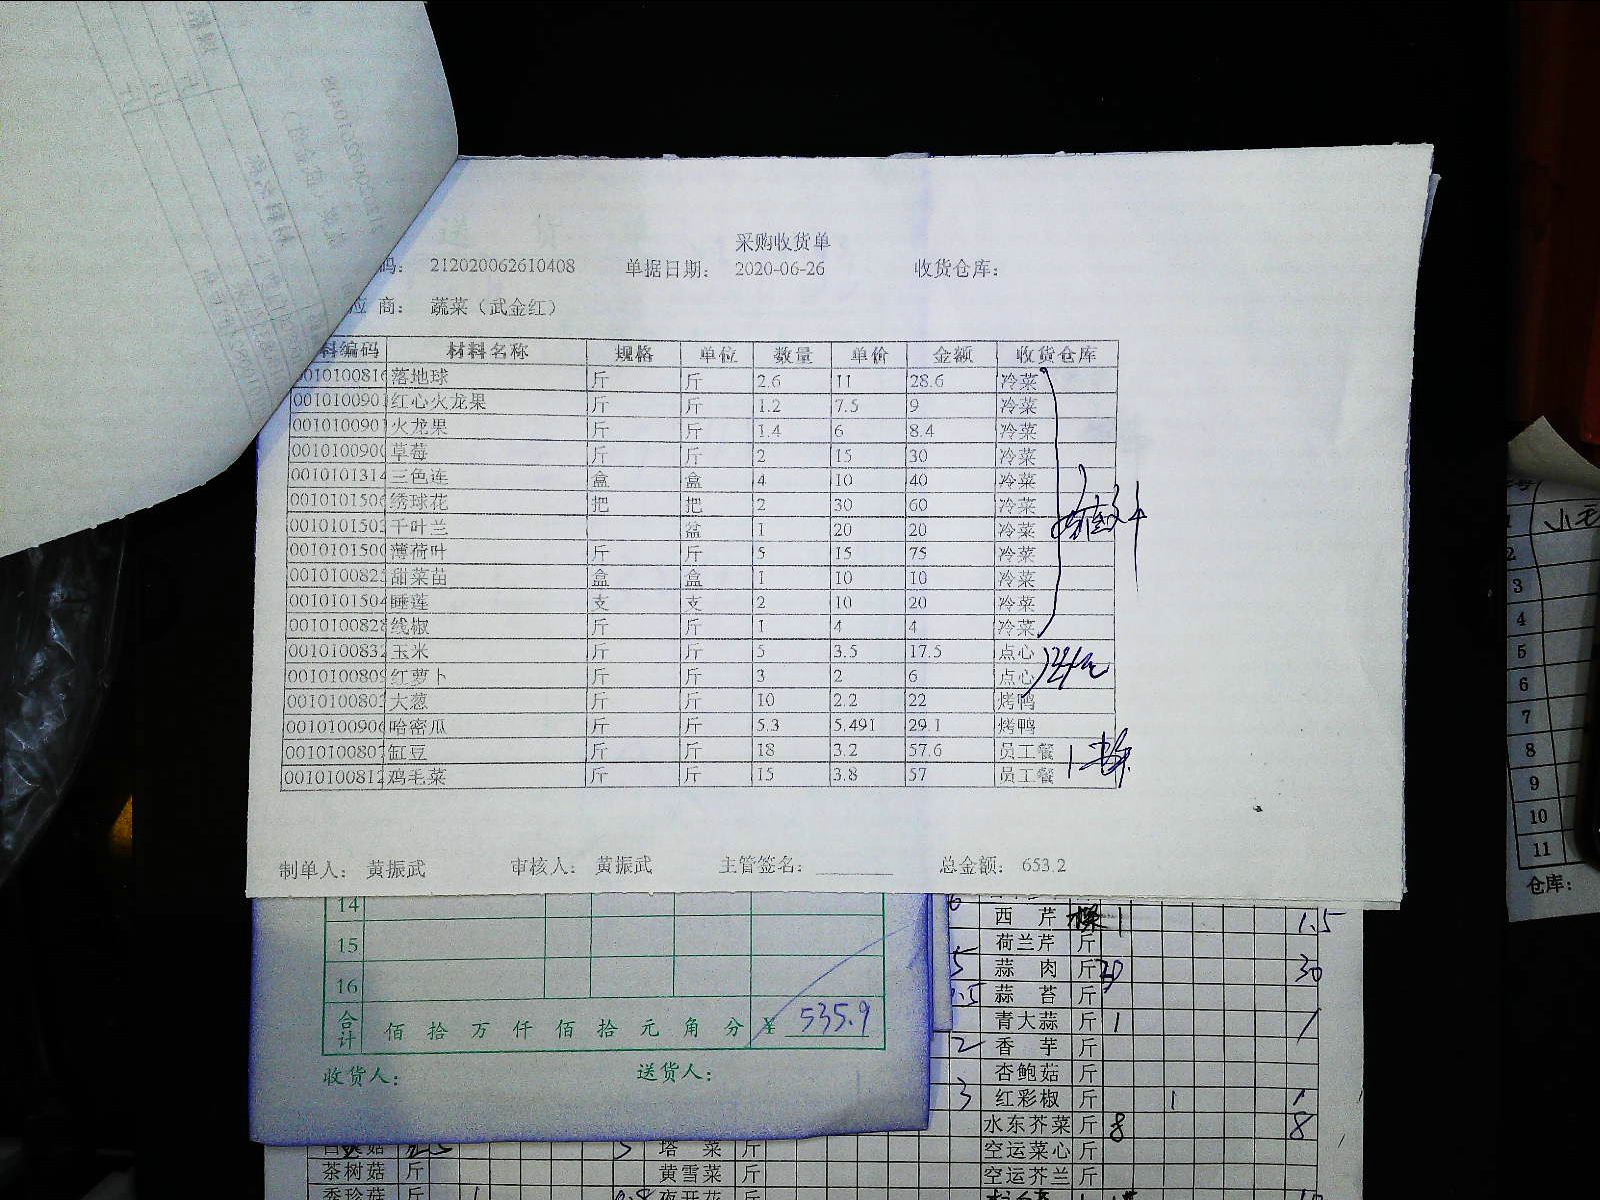 送 货 单
采购收货单
码： 212020062610408 单据日期： 2020-06-26 收货仓库：
应 商： 蔬菜（武金红）
料编码 材料名称 规格 单位 数量 单价 金额 收货仓库
0010100816 落地球 斤 斤 2.6 11 28.6 冷菜
001010090 红心火龙果 斤 斤 1.2 7.5 9 冷菜
001010090 火龙果 斤 斤 1.4 6 8.4 冷菜
001010090 草莓 斤 斤 2 15 30 冷菜
0010101314 三色连 盒 盒 4 10 40 冷菜
001010150 绣球花 把 把 2 30 60 冷菜
001010150 千叶兰 盆 1 20 20 冷菜
001010150 薄荷叶 斤 斤 5 15 75 冷菜
001010082 甜菜苗 盒 盒 1 10 10 冷菜
0010101504 睡莲 支 支 2 10 20 冷菜
0010100828 线椒 斤 斤 1 4 4 冷菜
001010083 玉米 斤 斤 5 3.5 17.5 点心
001010080 红萝卜 斤 斤 3 2 6 点心
001010080 大葱 斤 斤 10 2.2 22 烤鸭
001010090 哈密瓜 斤 斤 5.3 5.491 29.1 烤鸭
001010080 缸豆 斤 斤 18 3.2 57.6 员工餐
001010081 鸡毛菜 斤 斤 15 3.8 57 员工餐
制单人： 黄振武 审核人： 黄振武 主管签名： 总金额： 653.2
14
15
16
合计 佰 拾 万 仟 佰 拾 元 角 分 ¥ 535.9
收货人： 送货人：
6 西 芹 1 1.5
荷兰芹 斤
5 蒜 肉 斤 30
蒜 苔 斤
青大蒜 斤 1 1
2 香 芋 斤
杏鲍菇 斤
3 红彩椒 斤 1 1
水东芥菜 斤 8 8
塔 菜 斤 空运菜心 斤
茶树菇 斤 黄雪菜 斤 空运芥兰 斤
秀珍菇 斤 1 0.8 夜开花
2
3
4
5
6
7
8
9
10
11
仓库：